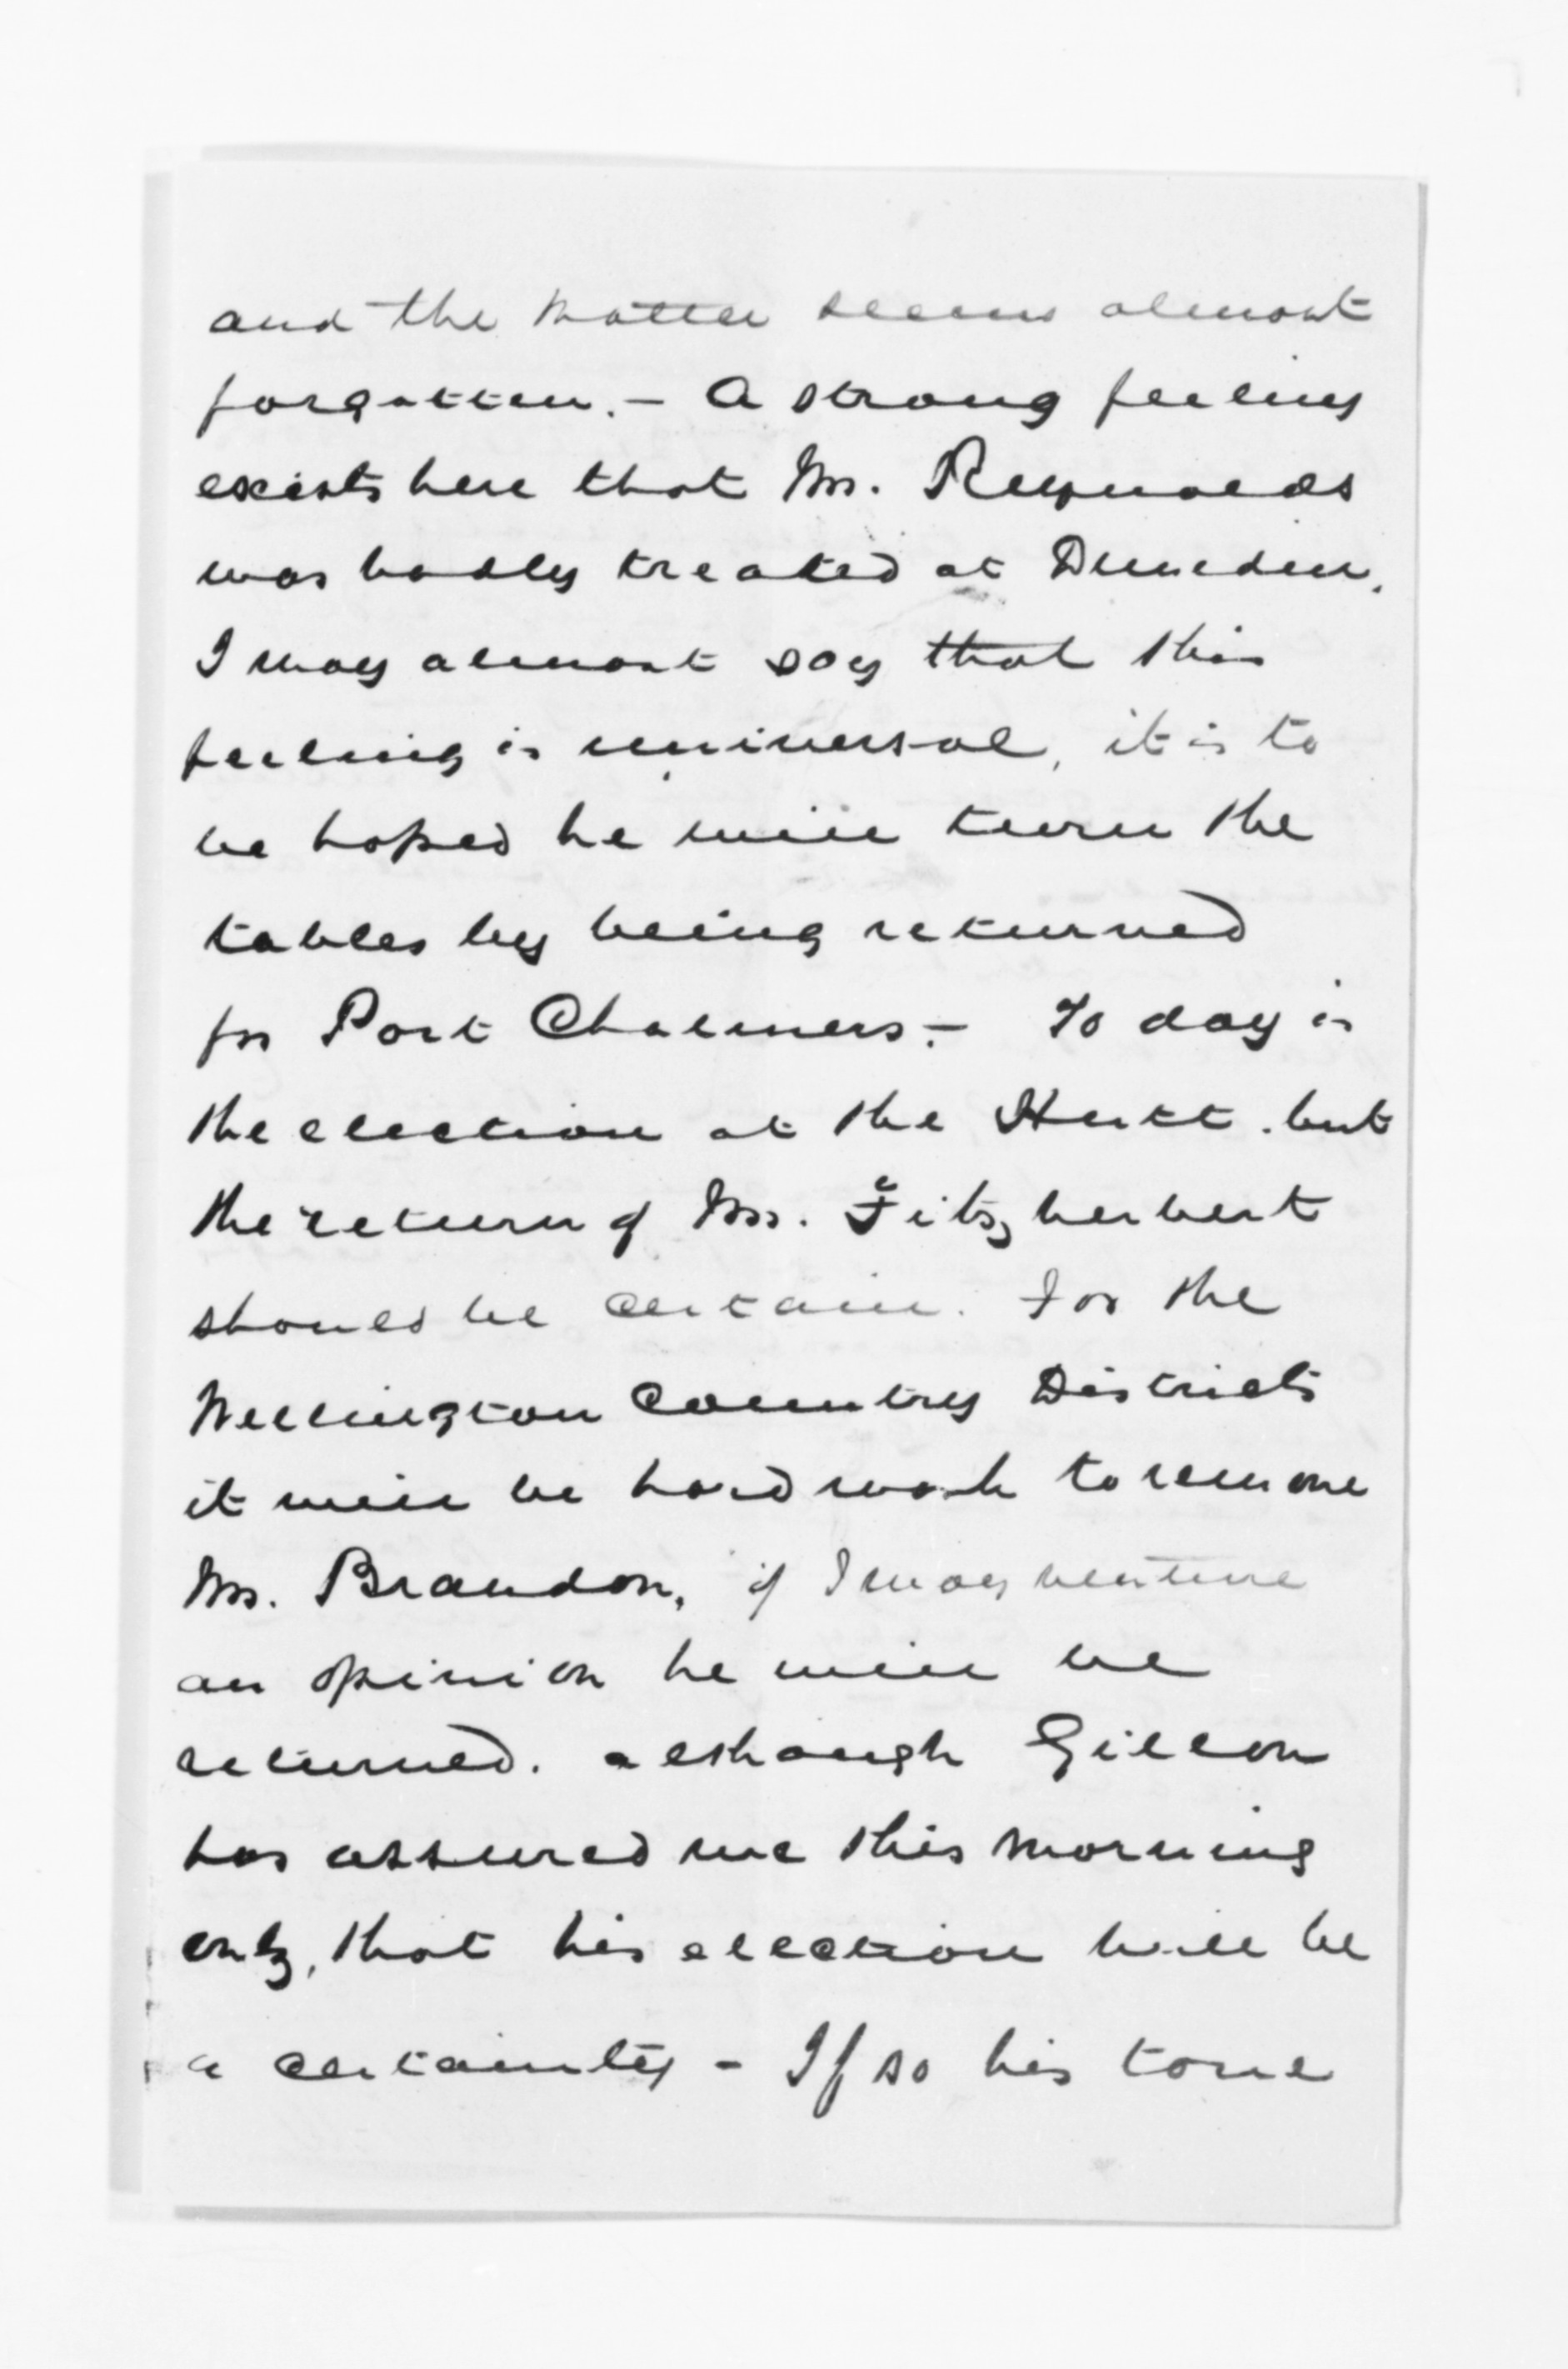 and the matter seems almost
forgotten. – A strong feeling
exists here that Mr. Reynolds
was badly treated at Dunedin.
I may almost say that this
feeling is universal, it is to
be hoped he will turn the
tables by being returned
for Port Chalmers. – To day is
the election at the Hutt. but
the return of Mr. Fitzherbert
should be certain. For the
Wellington Country Districts
it will be hard work to remove
Mr. Brandon, if I may venture
an opinion he will be
returned. although Gillon
has assured me this morning
only, that his election will be
a certainty – If so his tone